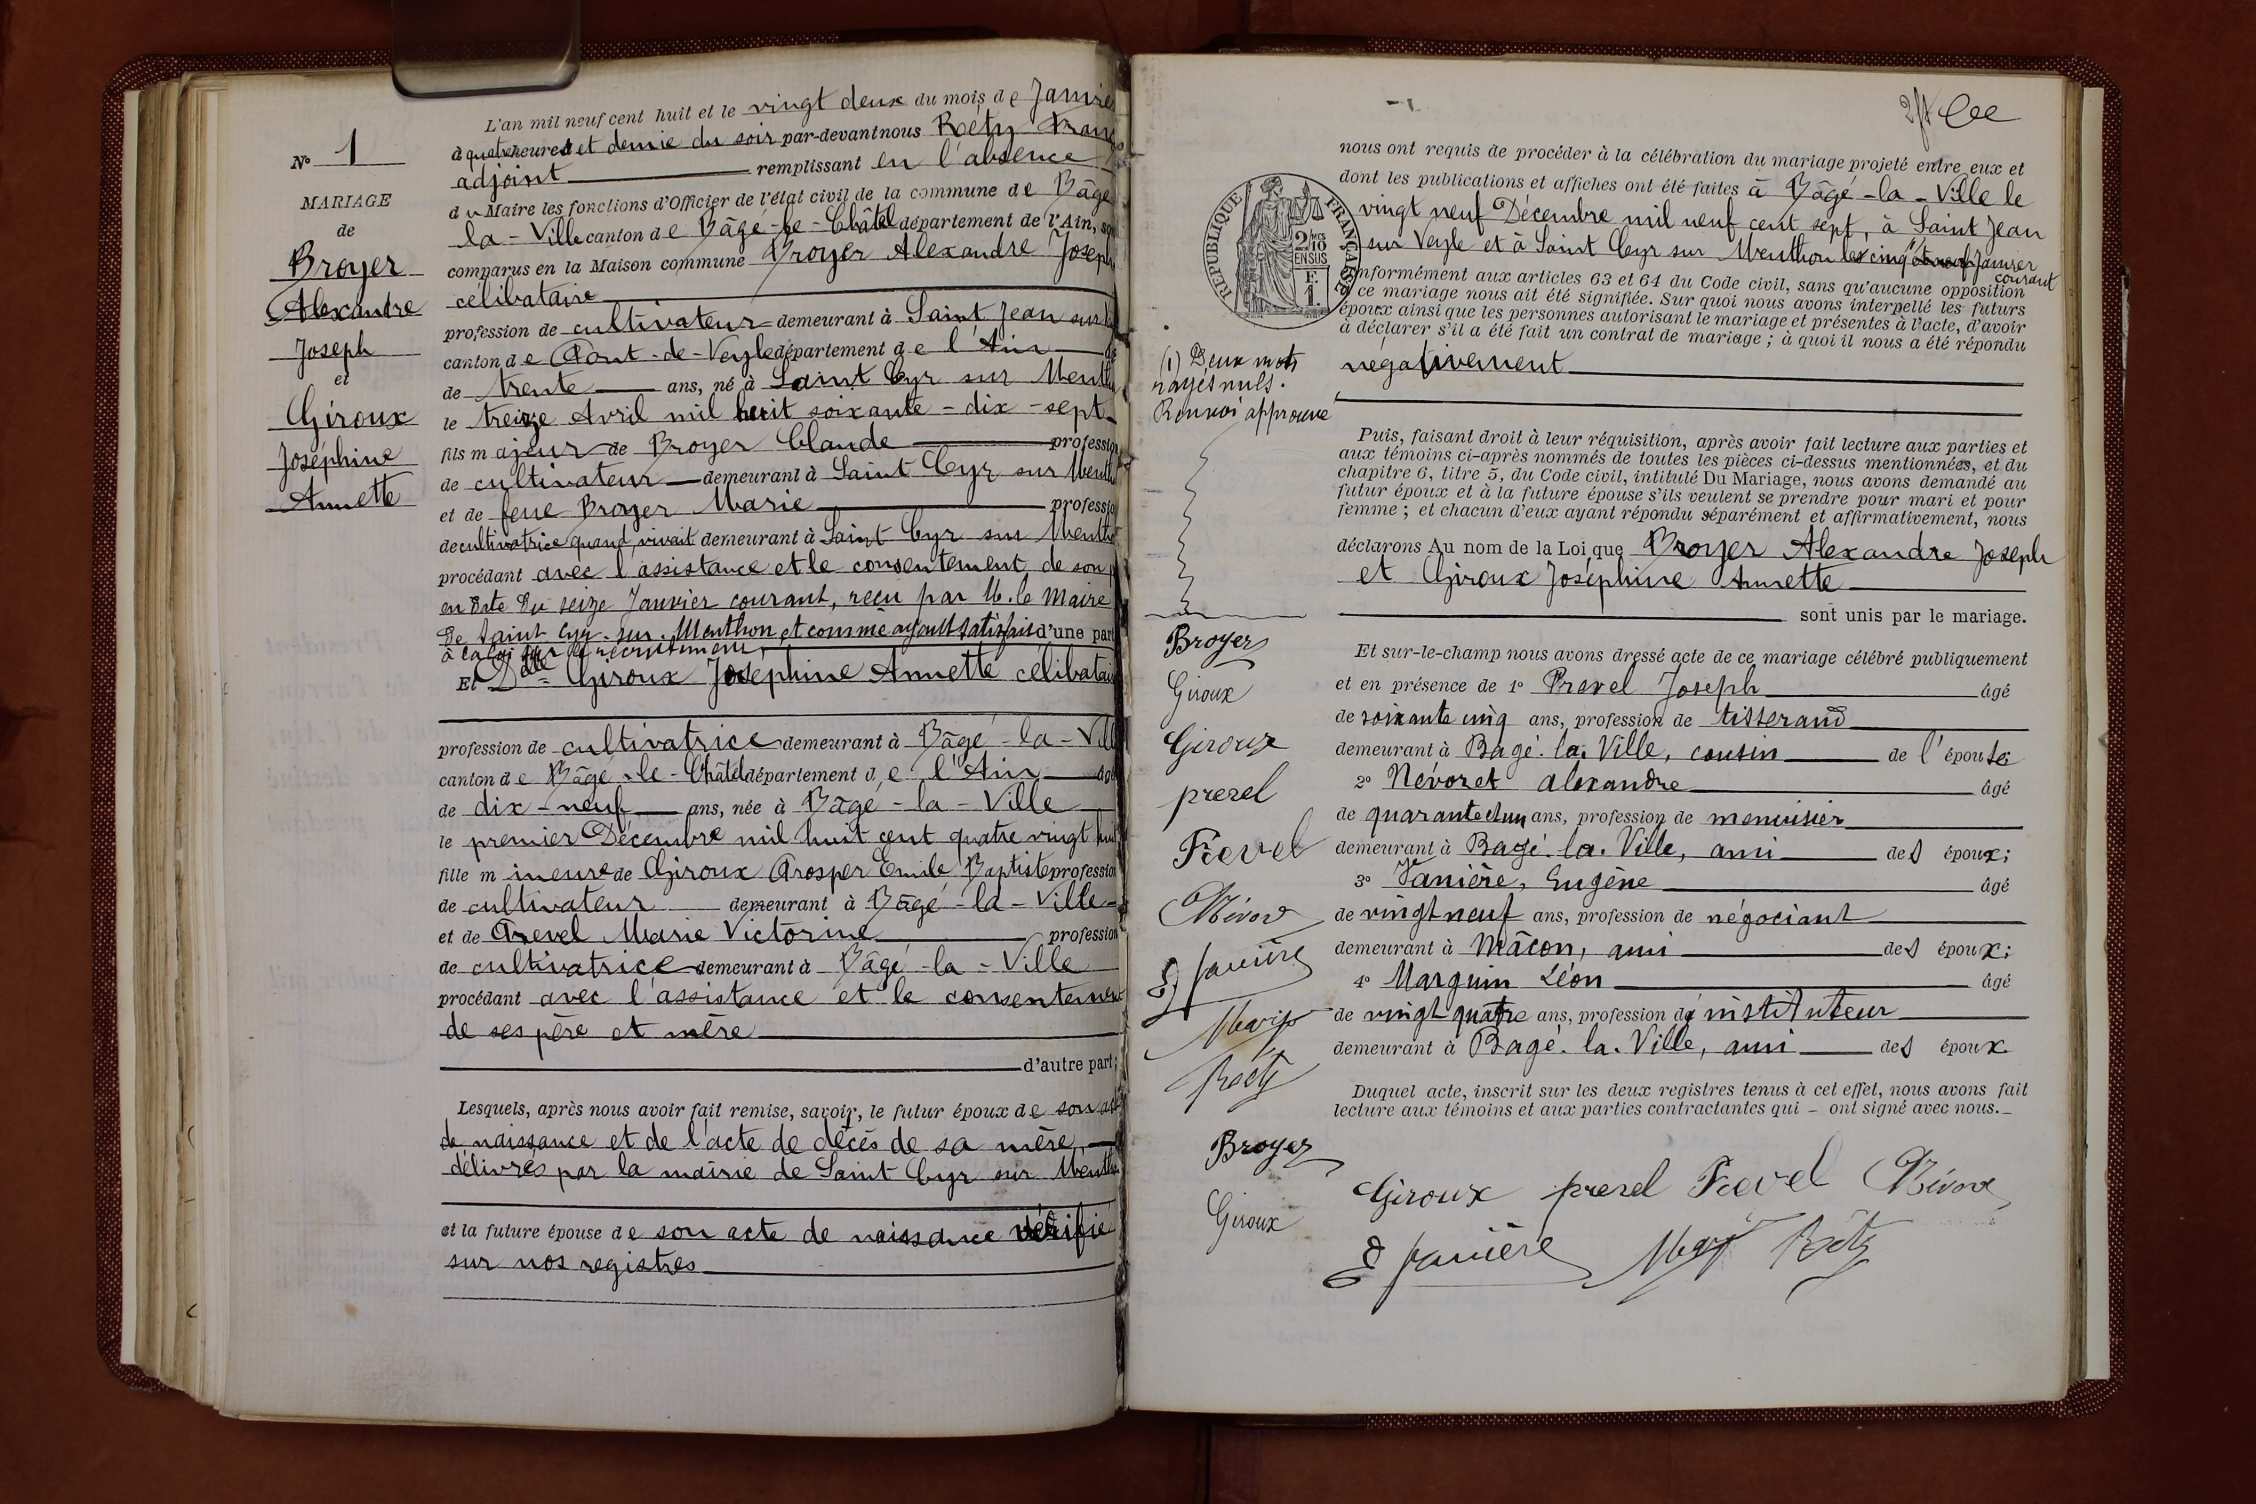 N° 1
MARIAGE
de
Broyer
Alexandre
Joseph
et
Giroux
Joséphine
Annette
L'an mil neuf cent huit et le vingt deux du mois de Janvie
à quatre heures et demie du soir par-devant nous Réty Fran
adjoint remplissant en l'absence
du Maire les fonctions d'Officier de l'état civil de la commune de Bâgé
la-Ville canton de Bâgé-le-Châtel département de l'Ain, so
comparus en la Maison commune Broyer Alexandre Joseph
célibataire
profession de cultivateur demeurant à Saint Jean sur
canton de Pont-de-Veyle département de l'Ain
de trente ans, né à Saint Cyr sur Menth
le treize Avril mil huit soixante-dix-sept
fils majeur de Broyer Claude profession
de cultivateur demeurant à Saint Cyr sur Menth
et de feue Broyer Marie professio
de cultivatrice quand vivait demeurant à Saint Cyr sur Menth
procédant avec l'assistance et le consentement de son
en date du seize Janvier courant, reçu par M. le Maire
de Saint Cyr-sur-Menthon et comme ayant satisfait d'une part
à la loi sur le recrutement,
Et Dlle Giroux Joséphine Annette célibatai
profession de cultivatrice demeurant à Bâgé-la-Vill
canton de Bâgé-le-Châtel département de l'Ain âgé
de dix-neuf ans, née à Bâgé-la-Ville
le premier Décembre mil huit cent quatre vingt hui
fille mineure de Giroux Prosper Emile Baptiste profession
de cultivateur demeurant à Bâgé-la-Ville
et de Prevel Marie Victorine profession
de cultivatrice demeurant à Bâgé-la-Ville
procédant avec l'assistance et le consentement
de ses père et mère
d'autre part;
Lesquels, après nous avoir fait remise, savoir, le futur époux de son act
de naissance et de l'acte de décès de sa mère,
délivrés par la mairie de Saint Cyr sur Menth
et la future épouse de son acte de naissance vérifié
sur nos registres
nous ont requis de procéder à la célébration du mariage projeté entre eux et
dont les publications et affiches ont été faites à Bâgé-la-Ville le
vingt neuf Décembre mil neuf cent sept, à Saint Jean
sur Veyle et à Saint Cyr sur Menthon les cinq Janvier
courant
conformément aux articles 63 et 64 du Code civil, sans qu'aucune opposition
à ce mariage nous ait été signifiée. Sur quoi nous avons interpellé les futurs
époux ainsi que les personnes autorisant le mariage et présentes à l'acte, d'avoir
à déclarer s'il a été fait un contrat de mariage; à quoi il nous a été répondu
négativement
REPUBLIQUE FRANÇAISE
2/10 EN SUS
F. 1
(1) Deux mots
rayés nuls.
Renvoi approuvé
Puis, faisant droit à leur réquisition, après avoir fait lecture aux parties et
aux témoins ci-après nommés de toutes les pièces ci-dessus mentionnées, et du
chapitre 6, titre 5, du Code civil, intitulé Du Mariage, nous avons demandé au
futur époux et à la future épouse s'ils veulent se prendre pour mari et pour
femme; et chacun d'eux ayant répondu séparément et affirmativement, nous
déclarons Au nom de la Loi que Broyer Alexandre Joseph
et Giroux Joséphine Annette
sont unis par le mariage.
Et sur-le-champ nous avons dressé acte de ce mariage célébré publiquement
et en présence de 1° Prevel Joseph âgé
de soixante cinq ans, profession de tisserand
demeurant à Bagé-la-Ville, cousin de l'épouse
2° Névoret Alexandre âgé
de quarante et un ans, profession de menuisier
demeurant à Bagé-la-Ville, ami des époux;
3° Janière, Eugène âgé
de vingt neuf ans, profession de négociant
demeurant à Mâcon, ami des époux;
4° Marguin Léon âgé
de vingt quatre ans, profession de instituteur
demeurant à Bagé-la-Ville, ami des époux
Duquel acte, inscrit sur les deux registres tenus à cet effet, nous avons fait
lecture aux témoins et aux parties contractantes qui - ont signé avec nous.
Broyer
Giroux
Giroux
prevel
Prevel
Névore
E Janière
Réty
Broyer
Giroux
Giroux prevel Prevel Névore
E Janière Réty